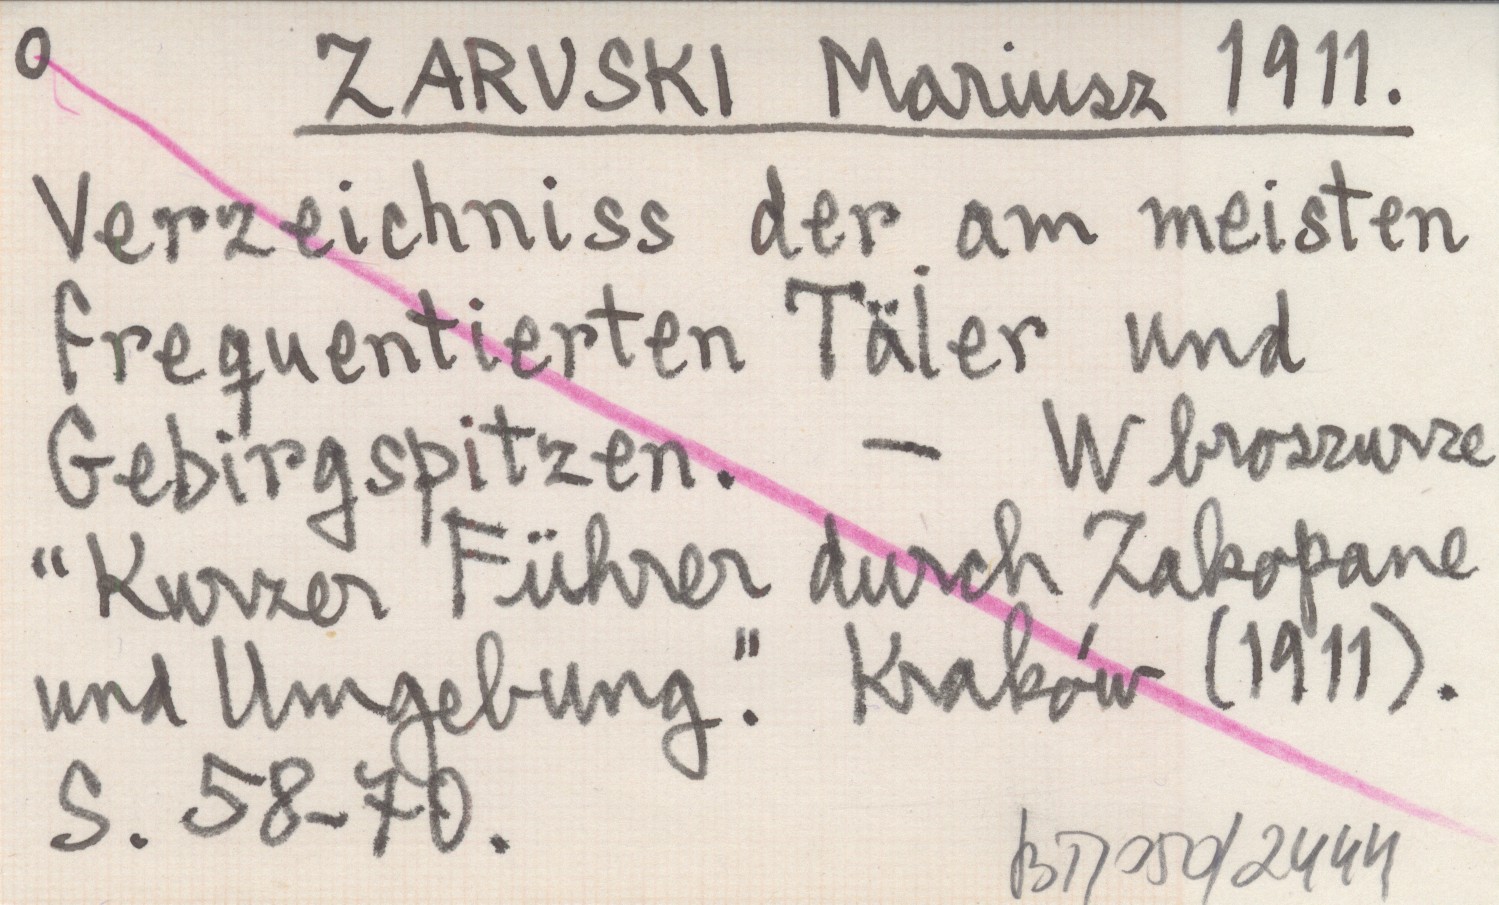 O ZARUSKI Mariusz 1911.
Verzeichniss der am meisten
frequentierten Täler und
Gebirgspitzen. – W broszurze
"Kurzer Führer durch Zakopane
und Umgebung". Kraków (1911).
S. 58-70.